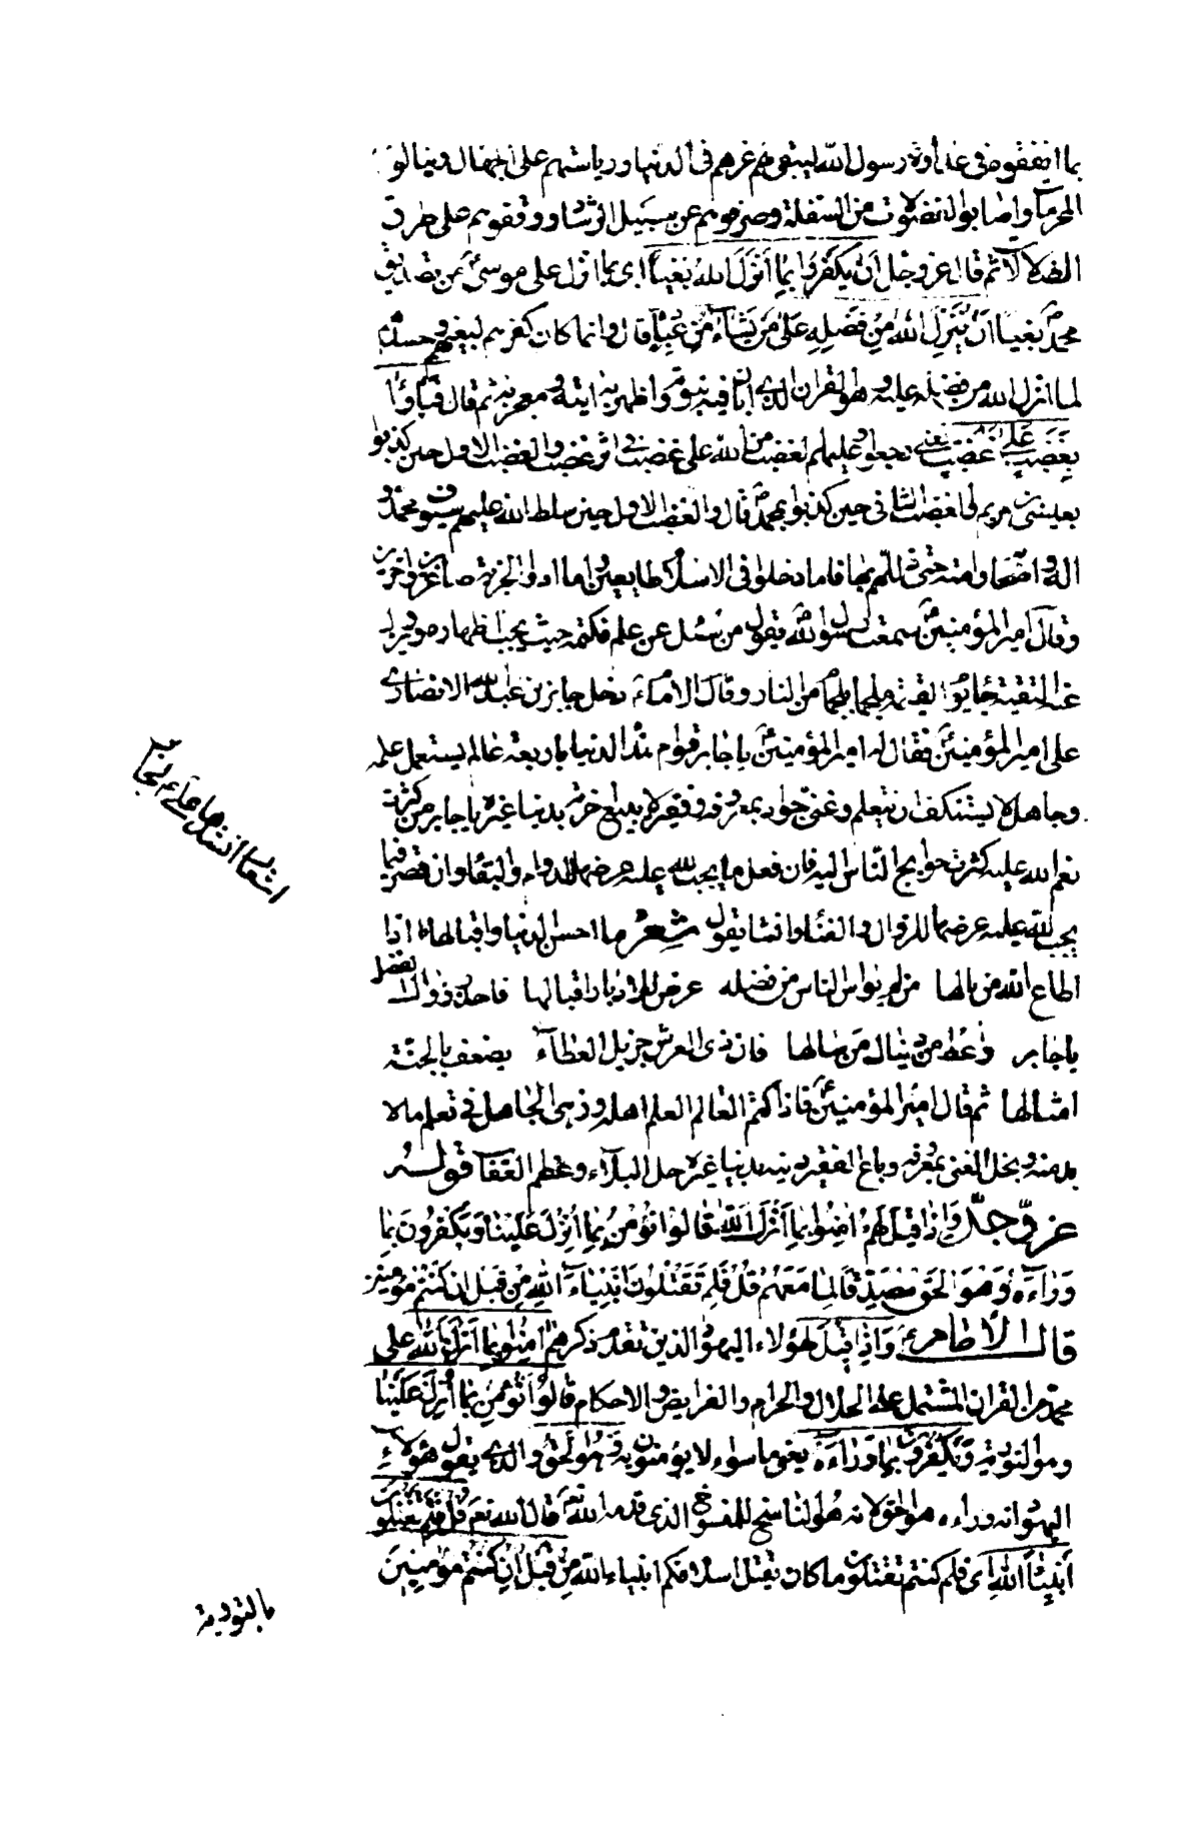 بما انفقوه فى عداوة رسول الله ليبقى لهم عزهم فى الدنيا ورياستهم على الجهال وينالوا
المحرمات واصابوا الفضولات من السفلة وصرفوهم عن سبيل الرشاد ووقفوهم على طرق
الضلالات ثم قال عز وجل اَنْ يَكْفُرُوا بِما اَنْزَلَ اللهُ بَغْياً اى بما انزل على موسى من تصديق
محمد بَغياً اَنْ يُنَزِّلَ اللهُ مِنْ فَضْلِهِ عَلىٰ مَنْ يَشاءُ مِنْ عِبادِهِ قال وانما كان كفرهم لبغيهم وحسدهم
لما انزل الله من فضله عليه وهو القران الذى ابان فيه نبوته واظهر به ايته ومعجزته ثم قال فَباؤُا
بِغَضَبٍ عَلىٰ غَضَبٍ يعنى رجعوا وعليهم الغضب من الله على غضب فى اثر غضب والغضب الاول حين كذبوا
بعيسى بن مريم والغضب الثانى حين كذبوا بمحمد قال والغضب الاول حين سلط الله عليهم سيوف محمد و
اله واصحابه وامته حتى ذللهم بها فاما دخلوا فى الاسلام طايعين واما ادوا الجزية صاغرين داخرين
وقال امير المؤمنين سمعت رسول الله يقول من سئل عن علم فكتمه حيث يجب اظهاره ويزول
عنه التقية جاء يوم القيمة ملجما بلجام من النار وقال الامام دخل جابر بن عبد الله الانصارى
على امير المؤمنين فقال له امير المؤمنين يا جابر قوام هذه الدنيا باربعة عالم يستعمل علمه
وجاهل لا يستنكف ان يتعلم وغنى جواد بمعروفه وفقير لا يبيع اخرته بدنيا غيره يا جابر من كثرت
نعم الله عليه كثرت حوايج الناس اليه فان فعل ما يجب لله عليه عرضها للدوام والبقاء وان قصر فيما
يجب لله عليه عرضها للزوال والفناء وانشا يقول شعر ما احسن الدنيا واقبالها اذا
اطاع الله من نالها من لم يواس الناس من فضله عرض للادبار اقبالها فاحذر زوال الفضل
يا جابر واعط من دنياك من سالها فان ذى العرش جزيل العطاء يضعف بالجنة
امثالها ثم قال امير المؤمنين فاذا كتم العالم العلم اهله وزهى الجاهل فى تعلم ما لا
بد منه وبخل الغنى بمعروفه وباع الفقير دينه بدنيا غيره حل البلاء وعظم العقاب قوله
عز وجل وَاِذا قيلَ لَهُمْ اٰمِنُوا بِما اَنْزَلَ اللهُ قالُوا نُؤْمِنُ بِما اُنْزِلَ عَلَيْنا وَيَكْفُرُونَ بِما
وَراءَهُ وَهُوَ الْحَقُّ مُصَدِّقاً لِما مَعَهُمْ قُلْ فَلِمَ تَقْتُلُونَ اَنْبِياءَ اللهِ مِنْ قَبْلُ اِنْ كُنْتُمْ مُؤْمِنينَ
قال الامام وَاِذا قيلَ لهؤلاء اليهود الذين تقدم ذكرهم اٰمِنُوا بِما اَنْزَلَ اللهُ على
محمد من القران المشتمل على الحلال والحرام والفرايض والاحكام قالُوا نُؤْمِنُ بِما اُنْزِلَ عَلَيْنا
وهو التورية وَيَكْفُرُونَ بِما وَراءَهُ يعنى ما سواه لا يؤمنون به وَهُوَ الْحَقُّ والذى يقول هؤلاء
اليهود انه وراءه هو الحق لانه هو الناسخ للمنسوخ الذى قدمه الله قال الله تعالى قُلْ فَلِمَ تَقْتُلُونَ
اَنْبِياءَ اللهِ اى فلم كنتم تقتلون وما كان يقتل اسلافكم انبياء الله مِنْ قَبْلُ اِنْ كُنْتُمْ مُؤْمِنينَ
بالتورية
اشعار انشدها على لجابر